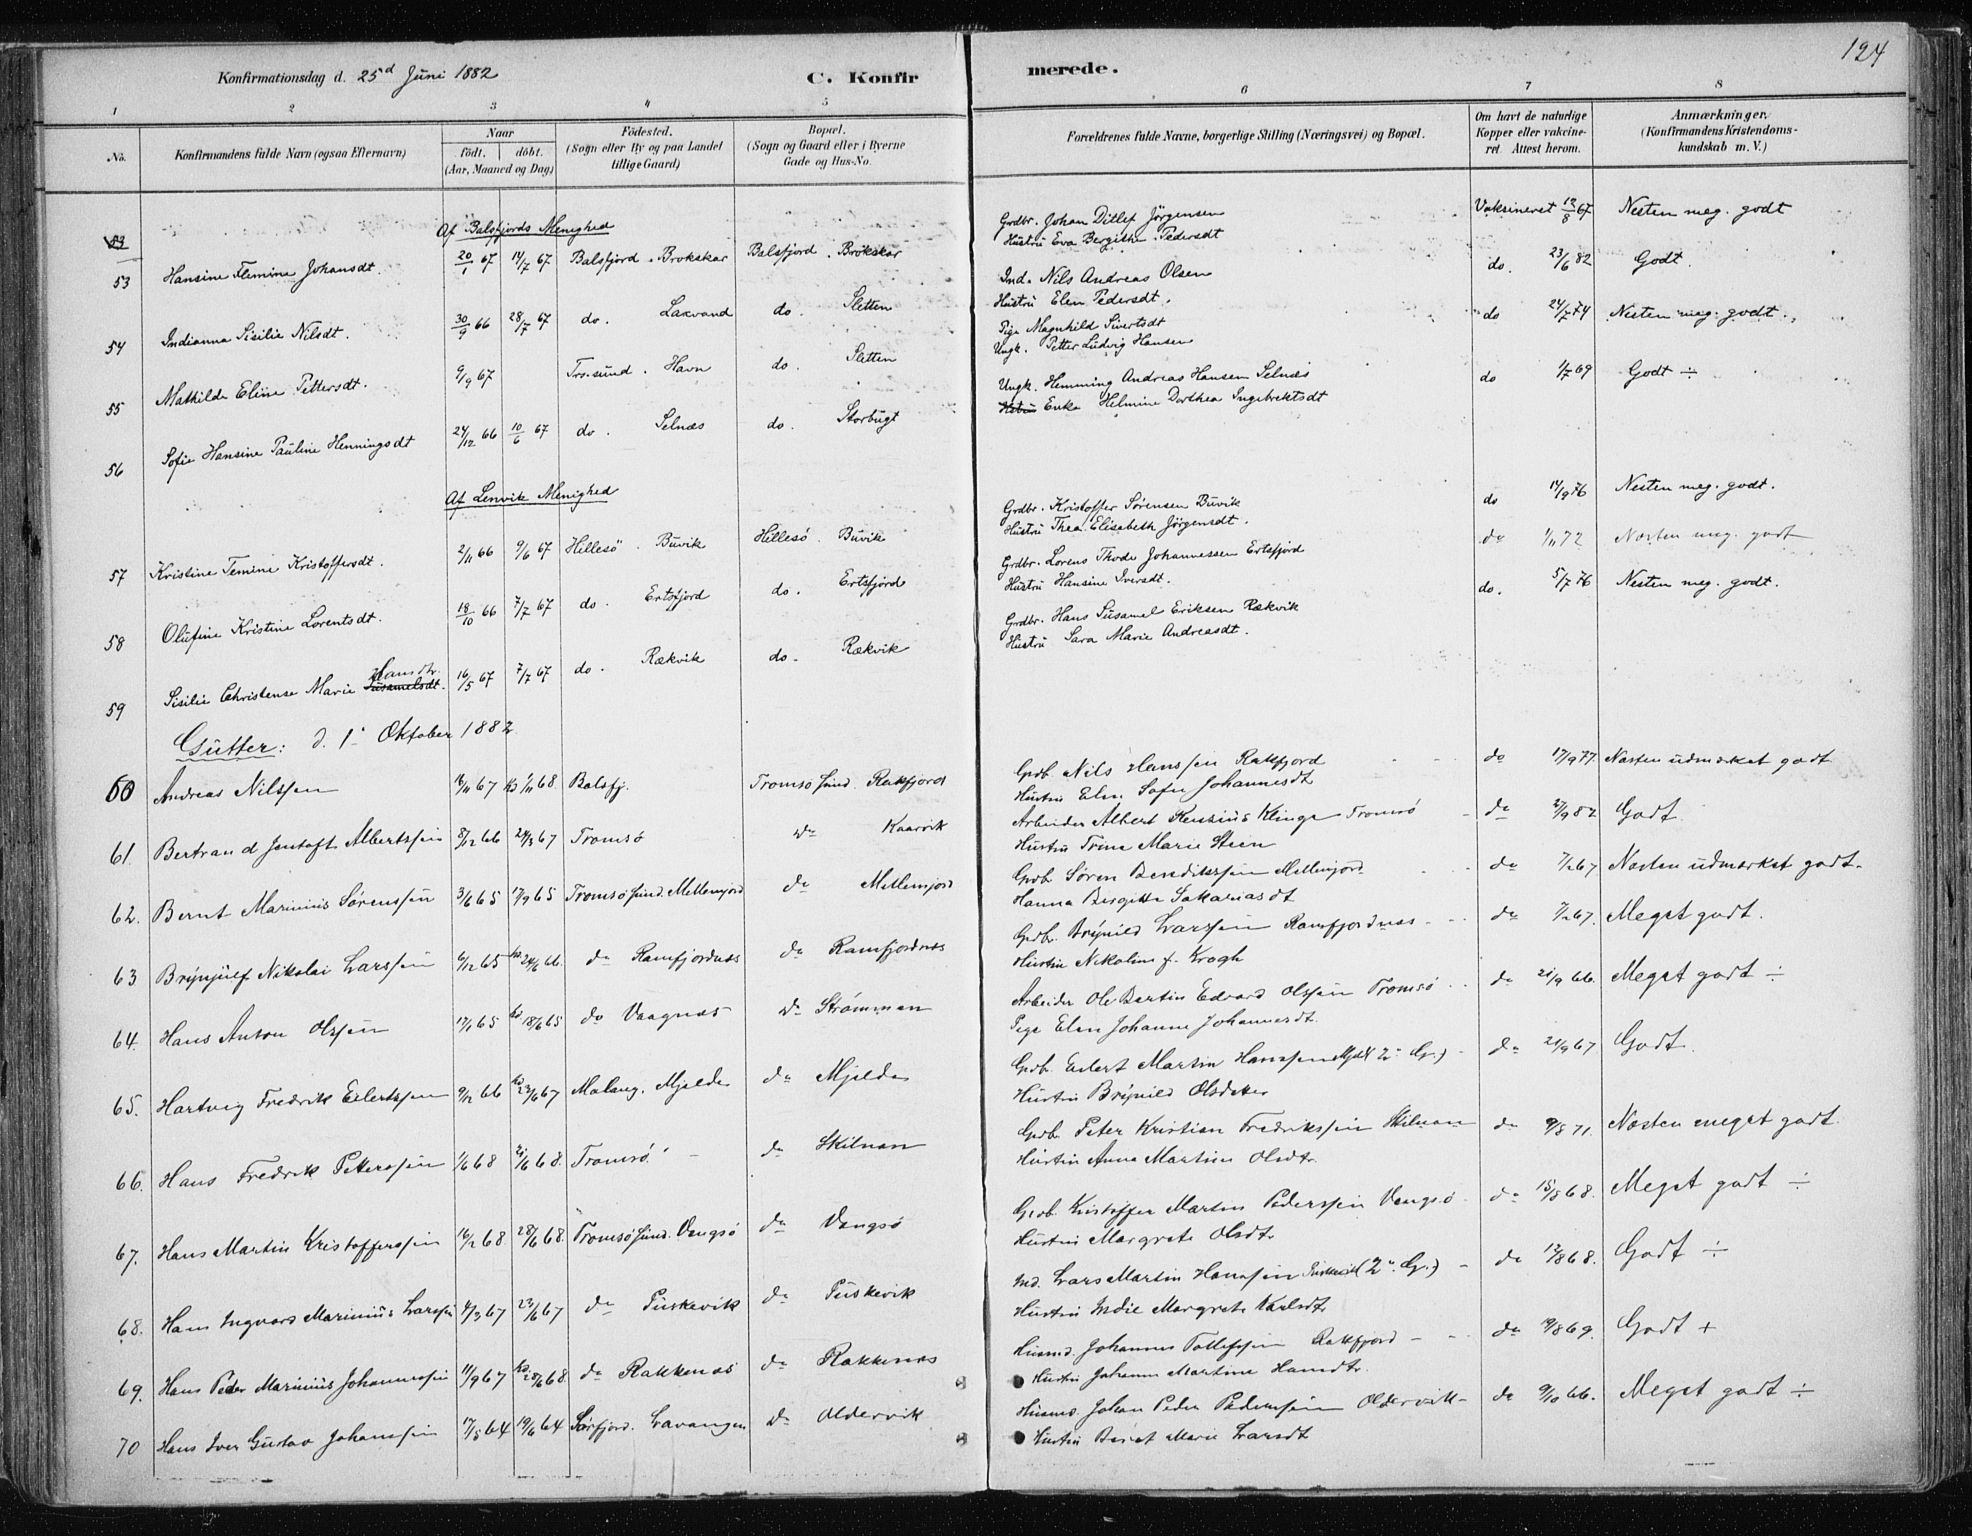 124
Konfirmationsdag d. 25d Juni 1882
C. Konfirmerede.
1 2 3 4 5 6 7 8
No.
Konfirmandens fulde Navn (ogsaa Efternavn)
Naar
födt. döbt.
(Aar, Maaned og Dag)
Födested.
(Sogn eller By og paa Landet tillige Gaard)
Bopæl.
(Sogn og Gaard eller i Byerne Gade og Hus-No.
Forældrenes fulde Navne, borgerlige Stilling (Næringsvei) og Bopæl.
Om havt de naturlige Kopper eller vakcineret. Attest herom.
Anmærkninger.
(Konfirmandens Kristendomskundskab m. V.)
Af Balsfjords Menighed
53 Hansine Flemine Johansdt. 20/1 67 14/7 67 Balsfjord. Brokskar Balsfjord. Brokskar Grdbr. Johan Ditlef Jörgensen Vaksineret 12/8 67 Nesten meg. godt
Hustru Eva Bergithe Pedersdt
54 Indianna Sisilie Nilsdt. 30/9 66 28/7 67 do. Lakvand do. Sletten Ind. Nils Andreas Olsen do. 23/6 82 Godt.
Hustru Elen Pedersdt.
55 Mathilde Eline Pettersdt. 9/9 67 Tro.sund. Havn do. Sletten Pige Magnhild Sivertsdt do 24/7 74 Nesten meg. godt.
Ungk. Petter Ludvig Hansen
56 Sofie Hansine Pauline Henningsdt 24/12 66 10/6 67 do. Selnæs do. Storbugt Ungk. Hemming Andreas Hansen Selnæs do 1/7 69 Godt ÷
Enke Helmine Dorthea Ingebrektsdt
Af Lenvik Menighed
57 Kristine Temine Kristoffersdt. 2/11 66 9/6 67 Hillesö. Buvik Hillesø. Buvik Grdbr. Kristoffer Sörensen Buvik do 14/9 76 Nesten meg. godt.
Hustru Thea Elisabeth Jörgensdt.
58 Olufine Kristine Lorentsdt. 18/10 66 7/7 67 do. Ertsfjord do. Ertsfjord Grdbr. Lorens Thode Johannessen Ertsfjord do 1/11 72 Næsten meg. godt
Hustru Hansine Iversdt.
59 Sisilie Christense Marie Susamelsdt. Hansdtr. 16/5 67 7/7 67 do. Rækvik do. Rækvik Grdbr. Hans Susamel Eriksen Rækvik do. 5/7 76 Nesten meg. godt.
Hustru Sara Marie Andreasdt.
Gutter: d. 1. Oktober 1882
60 Andreas Nilssen 16/11 67 1/11 68 Balsfj. Tromsösund. Rakfjord Grdb. Nils Hanssen Rakfjord do 17/9 77. Næsten udmærket godt
Hustru Elen Sofie Johannesdt
61. Bertrand Jentoft Albertssen 8/12 66 24/3 67 Tromsö do Kaarvik Arbeider Albert Klinge Tromsö do 27/9 82 Godt.
Hustru Trine Marie Steen
62. Bernt Marinius Sørenssen 3/6 65 17/9 65 Tromsösund. Mellemjord do Mellemjord Grdb. Søren Benediktssen Mellemjord do 7/2 67 Næsten udmærket godt.
Hanna Birgitte Sakariasdt
63 Brynjulf Nikolai Larssen 6/12 65 24/6 66. do Ramfjordnæs do Ramfjordnæs Grdb. Brynild Larssen Ramfjordnæs do 7/2 67. Meget godt.
Hustru Nikoline f. Krogh
64. Hans Anton Olssen 17/1 65 18/6 65 do Vaagnæs do Strømmen Arbeider Ole Bertin Edvard Olssen Tromsø do 21/9 66. Meget godt ÷
Pige Elen Johanne Johannesdt.
65. Hartvig Fredrik Eilertssen 9/12 66 23/6 67 Malang. Mjelde do Mjelde Grdb. Eilert Martin Hanssen Mjeld (2. G.) do 21/9 67 Godt.
Hustru Brynild Olsdatter
66. Hans Fredrik Petterssen 1/6 68 21/6 68. Tromsö. do Skilnan Grdb. Peter Kristian Fredrikssen Skilnan do 9/8 71. Næsten meget godt.
Hustru Anna Martine Olsdtr.
67. Hans Martin Kristofferssen 16/2 68 28/6 68. Tromsösund. Vengsö do Vengsö Grdb. Kristoffer Martin Pederssen Vengsö do 15/8 68. Meget godt ÷
Hustru Margrete Olsdtr
68. Hans Ingvard Marinius Larssen 4/3 67 23/6 67 do Tuskevik do Tuskevik Ind. Lars Martin Hanssen Tuskevik (2. G.) do 12/8 68. Godt ÷
Hustru Indie Margrete Karlsdtr
69. Hans Peder Marinius Johannessen 11/9 67 28/6 68. do Rakkenæs do Rakkenæs Husmd. Johannes Tollefssen Rakfjord do 19/8 69. Godt +
Hustru Johanne Martine Hansdtr.
70 Hans Iver Gustav Johanssen 17/5 64 19/6 64 Sørfjord. Lavangen do Oldervik Husmd. Johan Peder Pederssen Oldervik do 9/10 66. Meget godt ÷
Hustru Berit Marie Larsdt